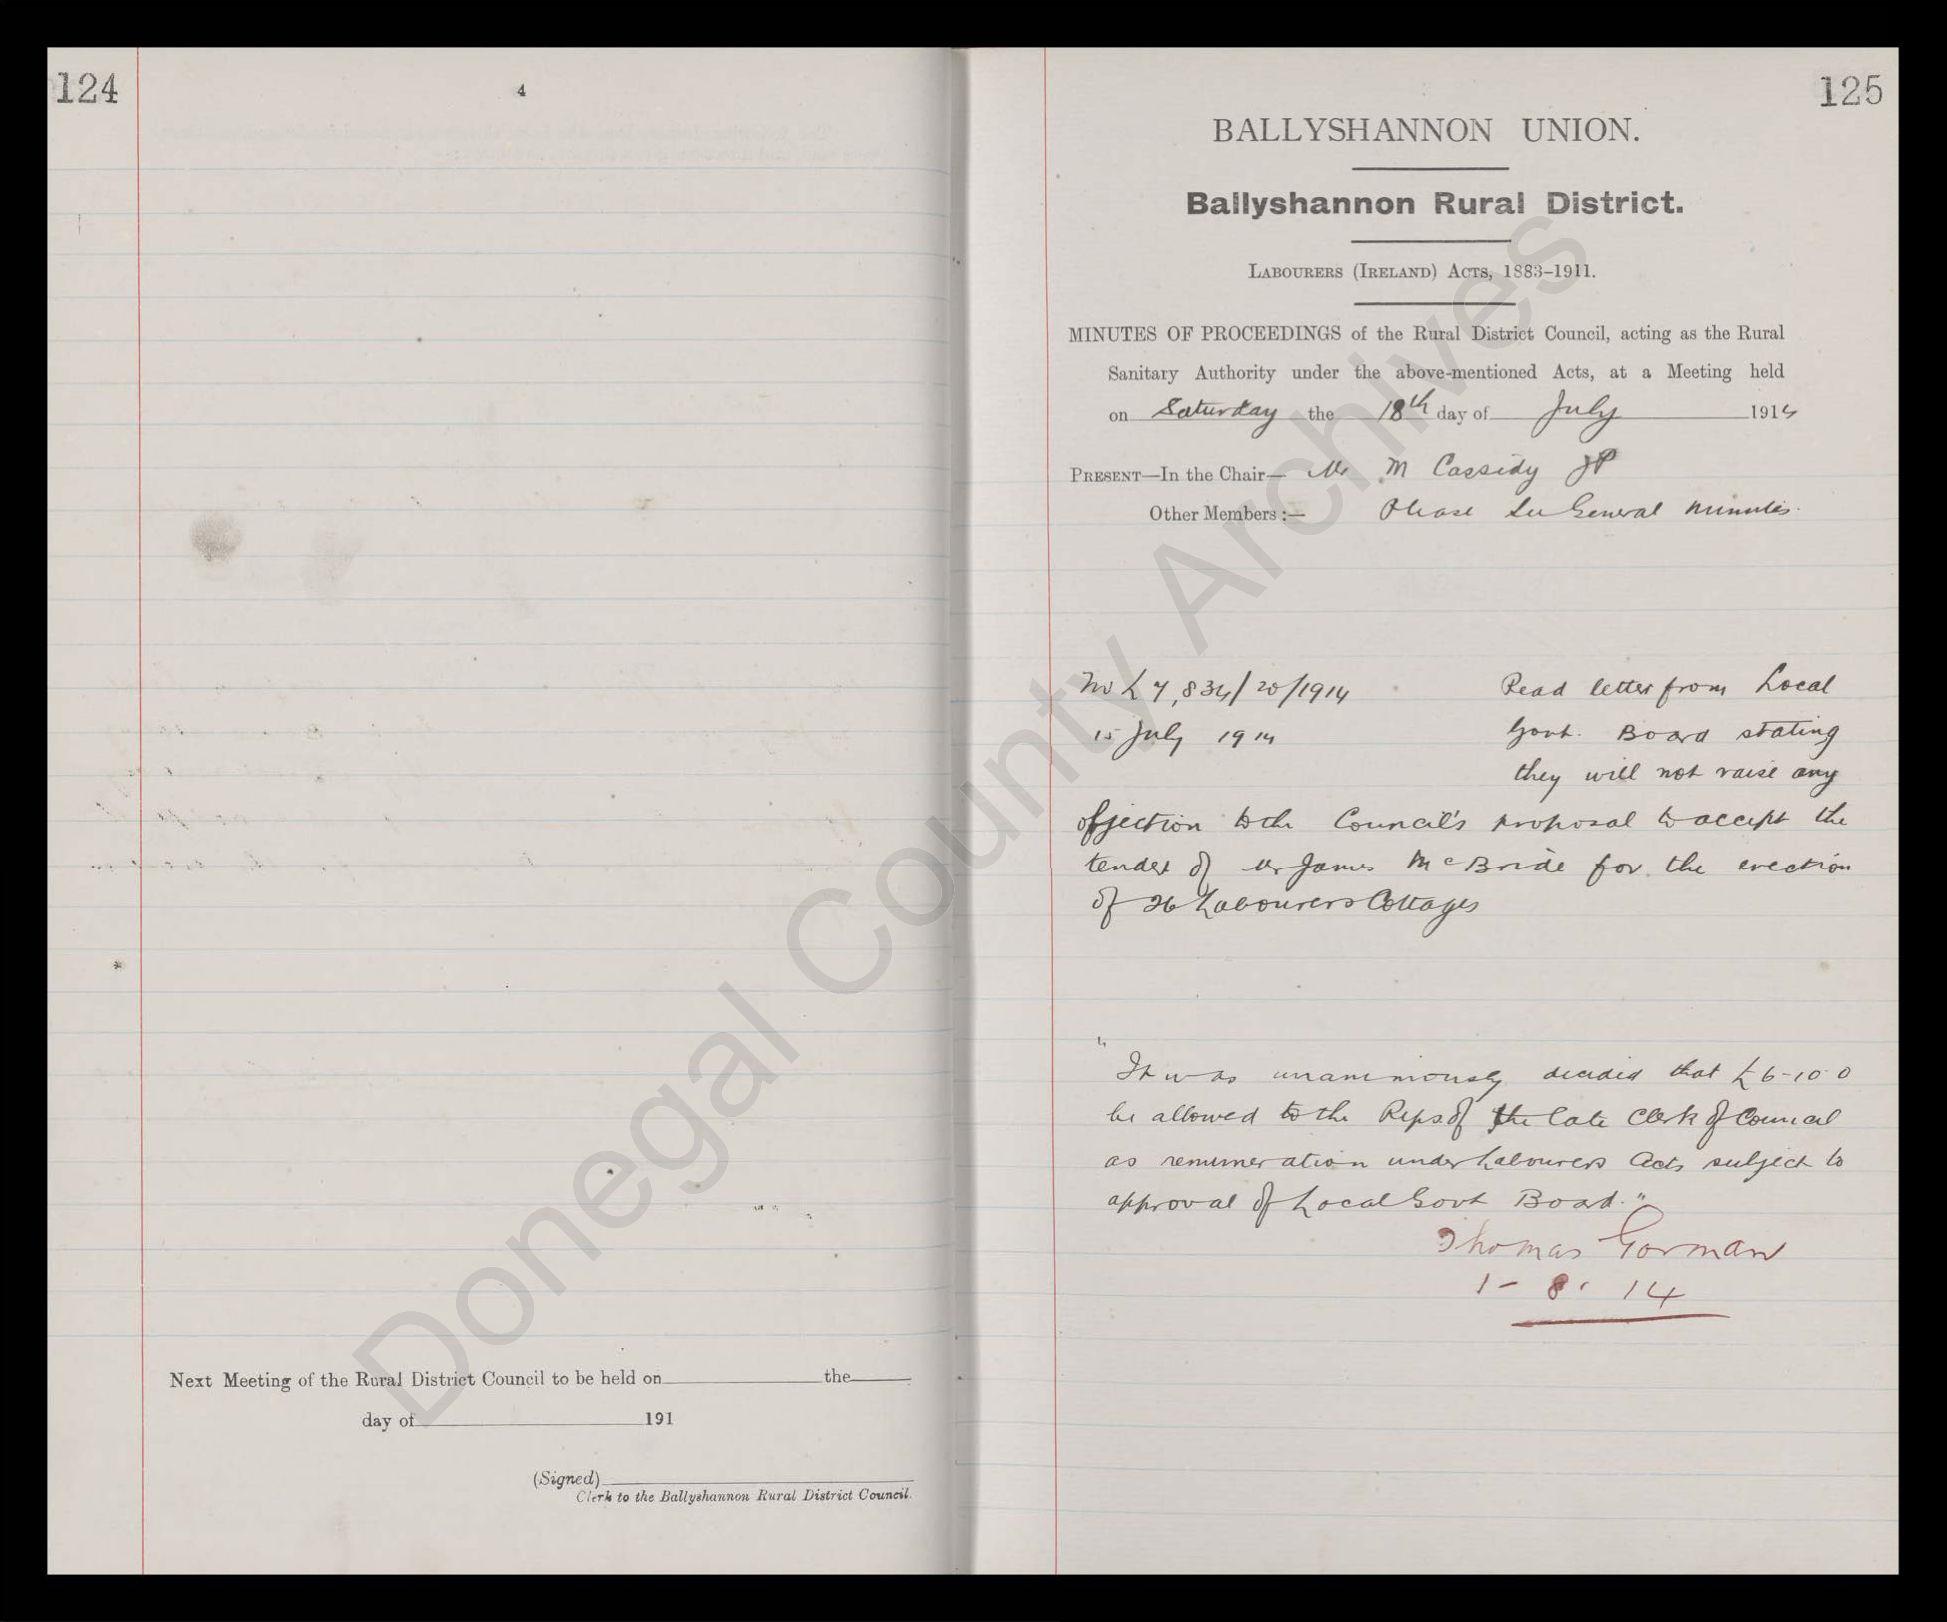 124
4
Next Meeting of the Rural District Council to be held on the
day of 191
(Signed)
Clerk to the Ballyshannon Rural District Council.
125
BALLYSHANNON UNION.
Ballyshannon Rural District.
LABOURERS (IRELAND) ACTS, 1883-1911.
MINUTES OF PROCEEDINGS of the Rural District Council, acting as the Rural
Sanitary Authority under the above-mentioned Acts, at a Meeting held
on Saturday the 18th day of July 1914
PRESENT—In the Chair— Mr M Cassidy JP
Other Members :— Please See General Minutes.
No L 7,834/20/1914 Read letter from Local
15 July 1914 Govt. Board stating
they will not raise any
objection to the Council's proposal to accept the
tender of Mr James McBride for the erection
of 26 Labourers Cottages
"It was unanimously decided that £6-10-0
be allowed to the Reps of the late Clerk of Council
as remuneration under Labourers Acts subject to
approval of Local Govt Board."
Thomas Gorman
1-8.14
Donegal County Archives